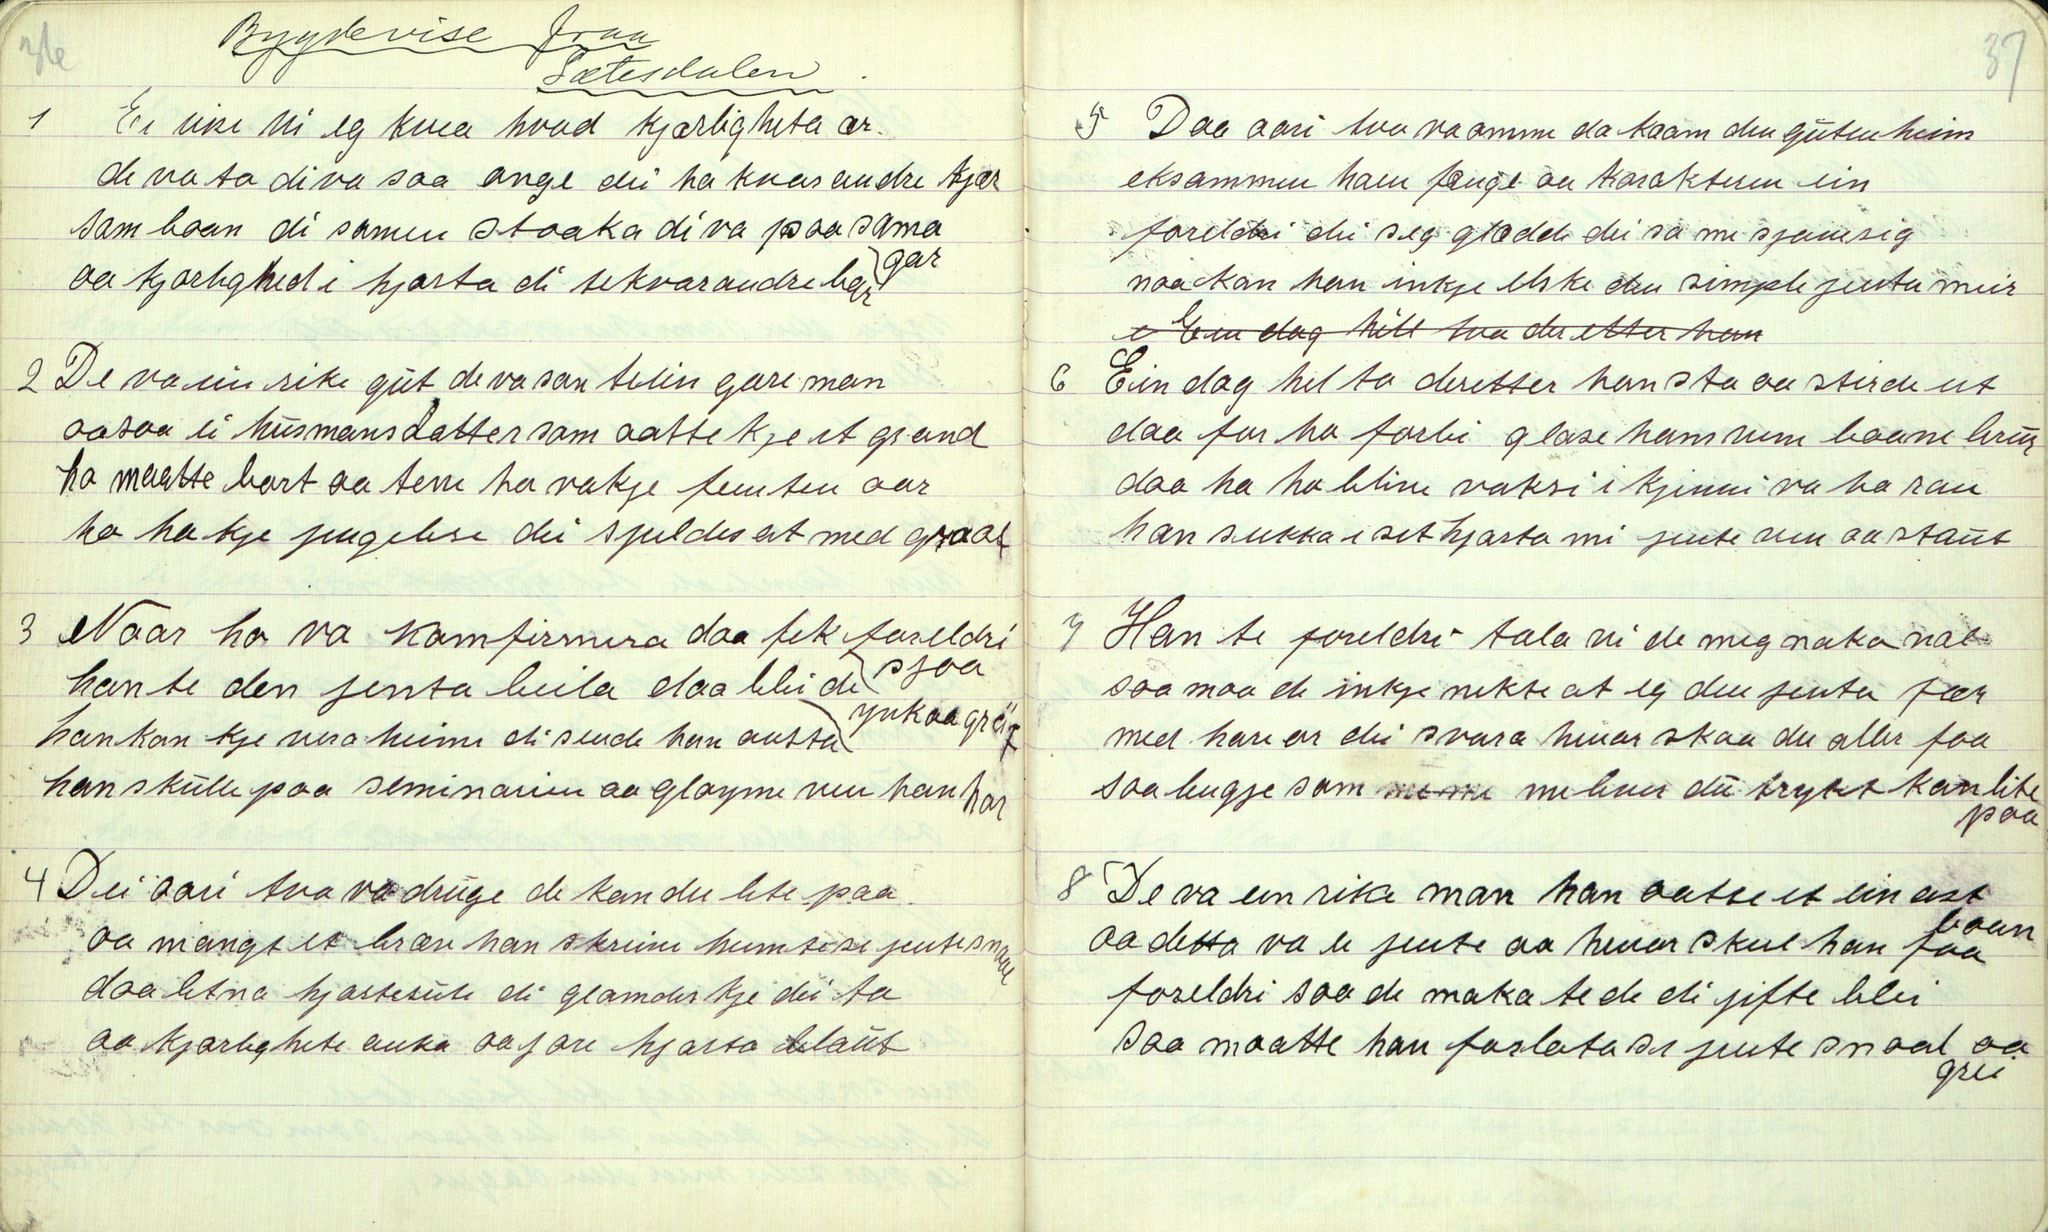 36
Bygdevise fraa
Sætesdalen.
1 Ei vise vi eg kvea hvad kjærligheta ær.
de va to di va saa onge dei ha kvarandre kjær
sam baan di samen staaka di va paa sama gar
aa kjærlighed i hjarta di te kvarandre bar
2 De va ein rike güt de va san te ein gareman
aa saa ei hüsmansdatter sam aatte kje et grand
ho maatte bort aa tene ho va kje femten aar
ho ha kje jugelse dei sjeldes at med graat
3 Naar ho va kamfirmera daa fek foreldri sjaa
han te den jenta beila daa blei de ynk aa gret
han kan kje vera heime di sende han austa
han skülle paa seminarien aa gløyme ven han har
4 Dei aari tva va drüge de kan du lite paa.
aa mangt et bræv han skreiv heim te si jente snaal
daa letna hjartesüte di glømdes kje dei to
aa kjærlighete auka aa jore hjarta blaüt
37
5 Daa aari tva va omme da kaam den güten heim
eksammen han fenge aa karakteren ein
foreldri dei seg glødde dei sa me sjæmsig
naa kan han inkje elske den simple jenta meir
Ein dag hell tva deretter han
6 Ein dag hel to deretter han sto aa stirde ut
daa for ho forbi glase hans ven baane brür
daa ho ha blive vaksi i kjinni va ho rau
han sukka i set hjarta mi jente ven aa staüt
7 Han te foreldri tala vi de meg naka vael
saa maa de inkje nekte at eg den jenta fær
med harer ar dei svara henar skaa du aller faa
saa lengje sam me lever dü trykt kan lite paa
8 De va ein rike man han aatte et einast baan
aa detta va ei jente aa henar skul han faa
foreldri saa de maka te de di jifte blei
saa maatte han forlata si jente snaal aa grei